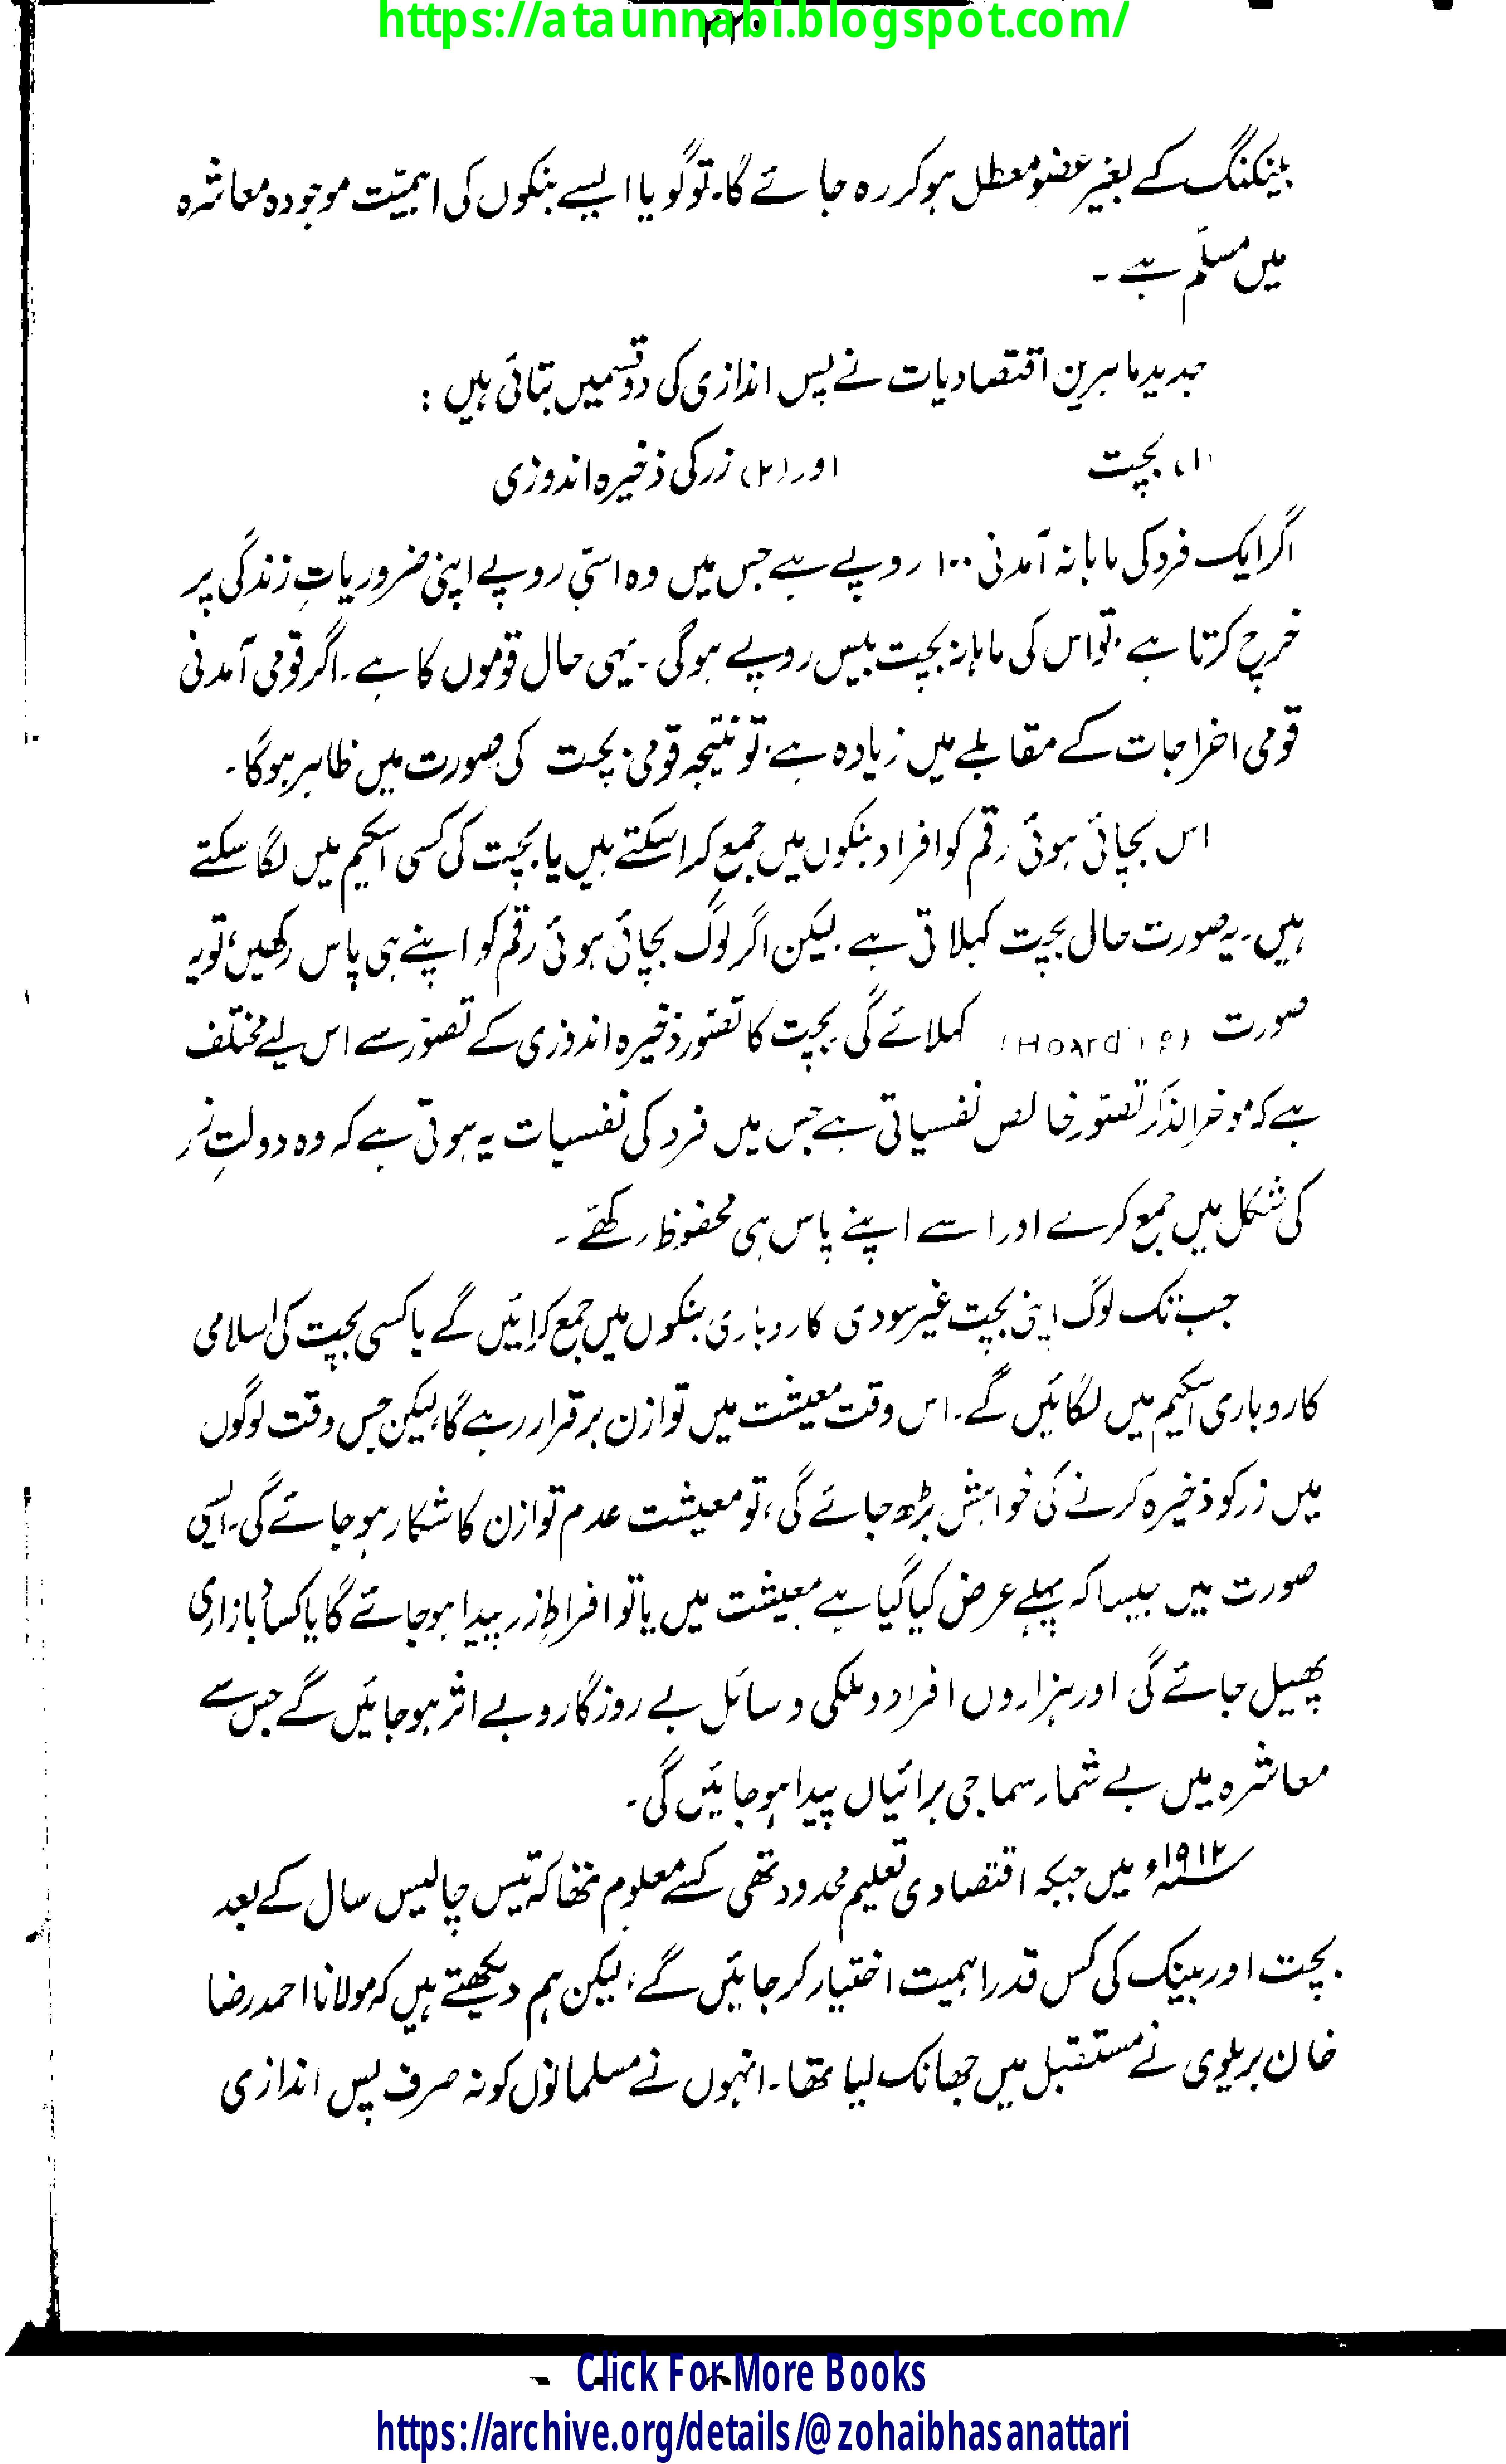 https://ataunnabi.blogspot.com/
بینکنگ کے بغیر عضو معطل ہو کر رہ جائے گا۔ تو گویا ایسے بنکوں کی اہمیّت موجودہ معاشرہ
میں مسلّم ہے ۔
جدید ماہرین اقتصادیات نے پس اندازی کی دو قسمیں بتائی ہیں :
(۱) بچت اور (۲) زر کی ذخیرہ اندوزی
اگر ایک فرد کی ماہانہ آمدنی ۱۰۰ روپے ہے جس میں وہ اسّی روپے اپنی ضروریاتِ زندگی پر
خرچ کرتا ہے، تو اس کی ماہانہ بچت بیس روپے ہوگی ۔ یہی حال قوموں کا ہے ۔ اگر قومی آمدنی
قومی اخراجات کے مقابلے میں زیادہ ہے، تو نتیجہ قومی بچت کی صورت میں ظاہر ہوگا۔
اس بچائی ہوئی رقم کو افراد بنکوں میں جمع کرا سکتے ہیں یا بچت کی کسی اسکیم میں لگا سکتے
ہیں۔ یہ صورت حال بچت کہلاتی ہے ۔ لیکن اگر لوگ بچائی ہوئی رقم کو اپنے ہی پاس رکھیں، تو یہ
صورت (Hoarding) کہلائے گی۔ بچت کا تصّور ذخیرہ اندوزی کے تصوّر سے اس لیے مختلف
ہے کہ موخر الذکر تصّور خالص نفسیاتی ہے جس میں فرد کی نفسیات یہ ہوتی ہے کہ وہ دولتِ زر
کی شکل میں جمع کرے اور اسے اپنے پاس ہی محفوظ رکھّے ۔
جب تک لوگ اپنی بچت غیر سودی کاروباری بنکوں میں جمع کرائیں گے یا کسی بچت کی اسلامی
کاروباری اسکیم میں لگائیں گے ۔ اس وقت معیشت میں توازن برقرار رہے گا، لیکن جس وقت لوگوں
میں زر کو ذخیرہ کرنے کی خواہش بڑھ جائے گی، تو معیشت عدم توازن کا شکار ہو جائے گی۔ ایسی
صورت میں جیسا کہ پہلے عرض کیا گیا ہے معیشت میں یا تو افراطِ زر پیدا ہو جائے گا یا کساد بازاری
پھیل جائے گی اور ہزاروں افراد و ملکی وسائل بے روزگار و بے اثر ہو جائیں گے جس سے
معاشرہ میں بے شمار سماجی برائیاں پیدا ہو جائیں گی۔
۱۹۱۲ء میں جبکہ اقتصادی تعلیم محدود تھی کسے معلوم تھا کہ تیس چالیس سال کے بعد
بچت اور بینک کی کس قدر اہمیت اختیار کر جائیں گے، لیکن ہم دیکھتے ہیں کہ مولانا احمد رضا
خان بریلوی نے مستقبل میں جھانک لیا تھا۔ انہوں نے مسلمانوں کو نہ صرف پس اندازی
Click For More Books
https://archive.org/details/@zohaibhasanattari